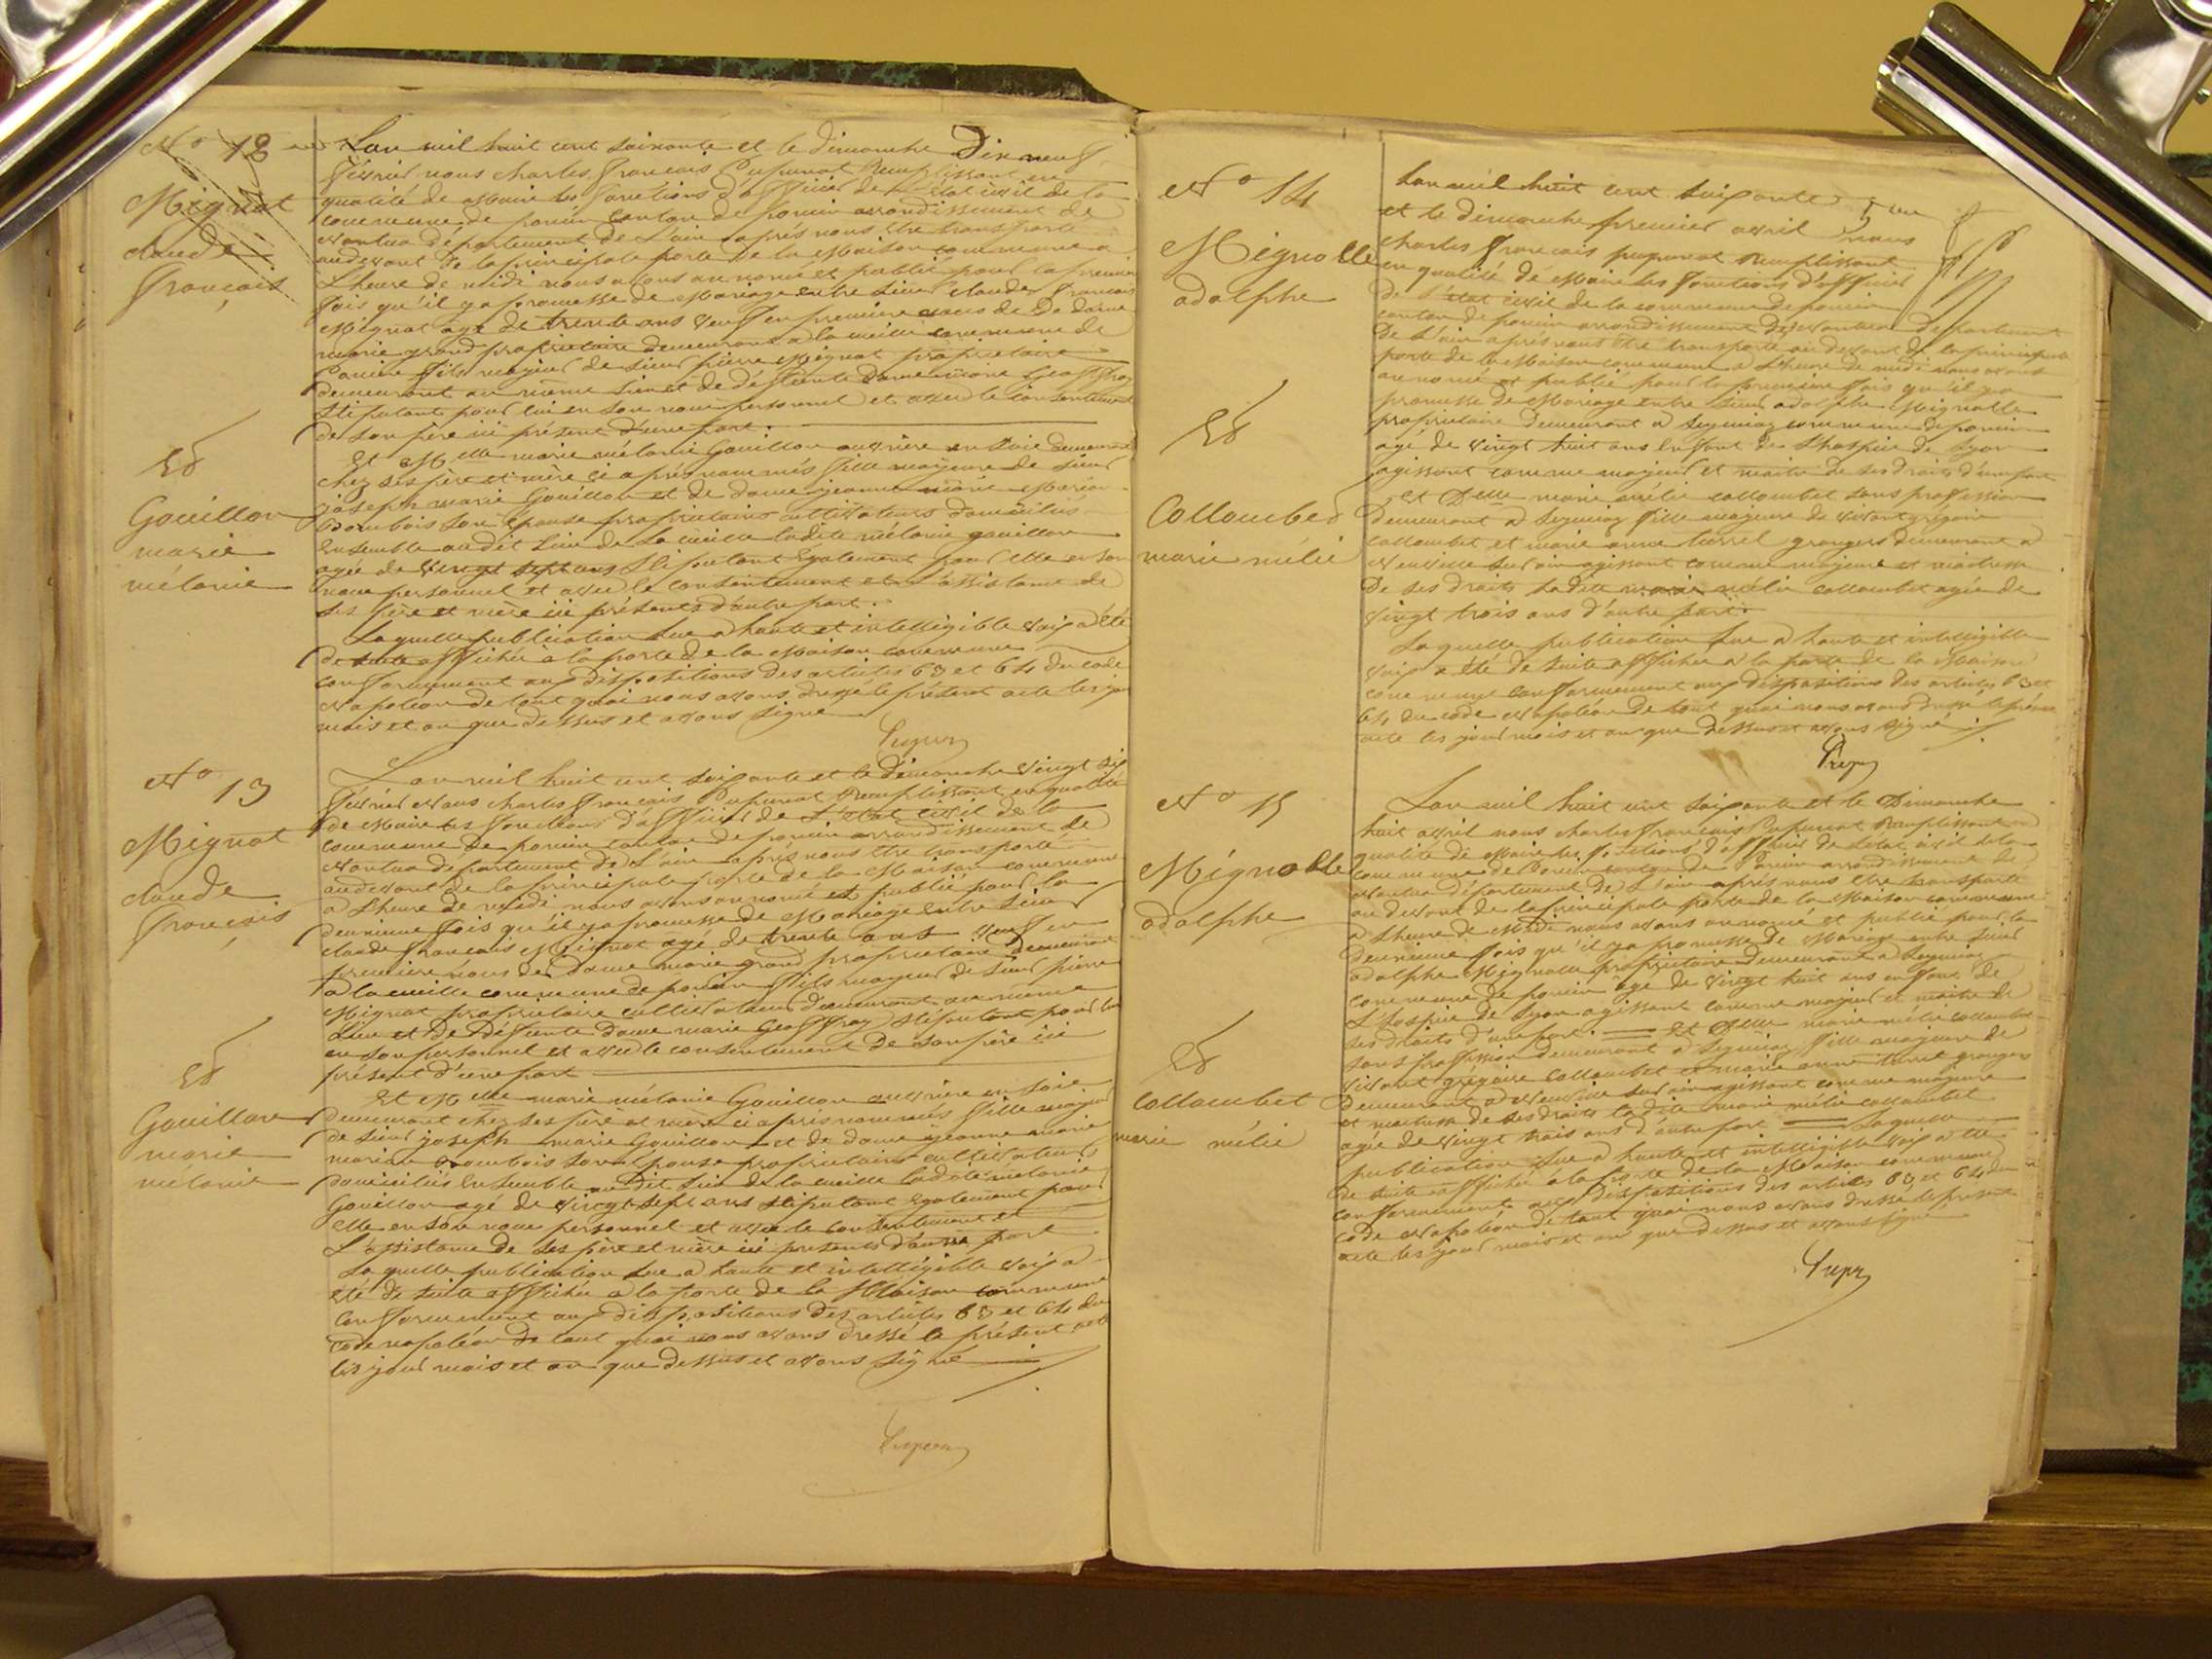 N° 12
Mignot
claude
françois
Et
Gouillon
marie
mélanie
L'an mil huit cent soixante et le dimanche Dix neuf
février nous charles françois Pupunat Remplissant en
qualité de Maire les fonctions d'officier de L'état civil de la
commune de poncin canton de poncin arrondissement de
Nantua département de L'ain après nous être transporté
au devant de la principale porte de la Maison commune a
L'heure de midi nous avons annoncé et publié pour la première
fois qu'il y a promesse de Mariage entre sieur claude françois
Mignot agé de trente ans veuf en première noces de De dame
marie grand propriétaire demeurant a la cueille commune de
Poncin fils majeur de sieur pierre Mignot propriétaire
demeurant au même lieu et de défunte Dame marie Geoffray
stipulant pour lui en son nom personnel et avec le consentement
de son père ici présent d'une part.
Et Melle marie mélanie Gouillon ouvrière en soie demeurant
chez ses père et mère ci après nommés fille majeure de sieur
joseph marie Gouillon et de dame jeanne marie Marian
Dombois son épouse propriétaires cultivateurs domiciliés
Ensemble au dit lieu de La cueille ladite mélanie gouillon
agée de vingt sept ans stipulant Egalement pour Elle en son
nom personnel et avec le consentement et L'assistance de
ses père et mère ici présents d'autre part.
Laquelle publication lue a haute et intelligible voix a été
de suite affichée a la porte de la Maison commune
conformement aux dispositions des articles 63 et 64 du code
Napoléon de tout quoi nous avons dressé le présent acte les jour
mois et an que dessus et avons signé
N° 13
Mignot
claude
françois
Et
Gouillon
marie
mélanie
L'an mil huit cent soixante et le dimanche vingt six
février Nous charles françois Pupunat Remplissant en qualité
de Maire les fonctions d'officier de L'état civil de la
commune de poncin canton de poncin arrondissement de
Nantua département de L'ain après nous être transporté
au devant de la principale porte de la Maison commune
a L'heure de midi nous avons annoncé et publié pour la
deuxième fois qu'il y a promesse de Mariage entre sieur
claude françois Mignot agé de trente ans veuf en
première noces de Dame marie grand propriétaire demeurant
a la cueille commune de poncin fils majeur de sieur pierre
Mignot propriétaire cultivateur demeurant au même
Lieu et De Défunte dame marie Geoffray stipulant pour lui
en son personnel et avec le consentement De son père ici
présent d'une part
Et Melle marie mélanie Gouillon ouvrière en soie
demeurant chez ses père et mère ci après nommés fille majeure
de sieur joseph marie Gouillon et de dame jeanne marie
marian Dombois son épouse propriétaires cultivateurs
domiciliés Ensemble au dit lieu de la cueille ladite mélanie
Gouillon agé de vingt sept ans stipulant Egalement pour
Elle en son nom personnel et avec le consentement et
L'assistance de ses père et mère ici présents d'autre part
Laquelle publication lue a haute et intelligible voix a
été de suite affichée a la porte de la Maison commune
conformement aux dispositions des articles 63 et 64 du
code napoléon de tout quoi nous avons dressé le présent acte
les jour mois et an que dessus et avons signé
N° 14
Mignolle
adolphe
Et
Collombet
marie mélie
L'an mil huit cent soixante
et le dimanche premier avril nous
charles françois pupunat Remplissant
en qualité de Maire les fonctions d'officier
de l'état civil de la commune de poncin
canton de poncin arrondissement de Nantua département
De L'ain après nous être transporté au devant de la principale
porte de la Maison commune a L'heure de midi nous avons
annoncé et publié pour la première fois qu'il y a
promesse de Mariage entre sieur adolphe Mignolle
propriétaire demeurant a Leymiaz commune de poncin
agé de vingt huit ans Enfant de L'hospice de Lyon
agissant comme majeur et maitre de ses droits d'une part
Et Delle marie mélie collombet sans profession
demeurant a Leymiaz fille majeure de vivant grégoire
collombet et marie anne turrel grangers demeurant a
Neuville sur ain agissant comme majeure et maitresse
De ses droits ladite marie mélie collombet agée de
vingt trois ans d'autre part.
Laquelle publication lue a haute et intelligible
voix a été De suite affichée a la porte de la Maison
commune conformement aux dispositions des articles 63 et
64 du code Napoléon De tout quoi nous avons dressé le présent
acte les jour mois et an que dessus et avons signé
N° 15
Mignolle
adolphe
Et
Collombet
marie mélie
L'an mil huit cent soixante et le Dimanche
huit avril nous charles françois Pupunat Remplissant en
qualité de Maire les fonctions d'officier de L'état civil de la
commune de Poncin canton de Poncin arrondissement de
Nantua département de L'ain après nous être transporté
au devant de la principale porte de la Maison commune
a L'heure de Midi nous avons annoncé et publié pour la
deuxième fois qu'il y a promesse de Mariage entre sieur
adolphe Mignolle propriétaire demeurant a Leymiaz
commune de poncin agé de vingt huit ans enfant de
L'hospice de Lyon agissant comme majeur et maitre de
ses droits d'une part. Et Delle marie mélie collombet
sans profession demeurant a Leymiaz fille majeure de
vivant grégoire collombet et marie anne turrel grangers
demeurant a Neuville sur ain agissant comme majeure
et maitresse de ses droits ladite marie mélie collombet
agée de vingt trois ans d'autre part Laquelle
publication lue a haute et intelligible voix a été
de suite affichée a la porte de la Maison commune
conformement aux dispositions des articles 63 et 64 du
code Napoléon de tout quoi nous avons dressé le présent
acte les jour mois et an que dessus et avons signé